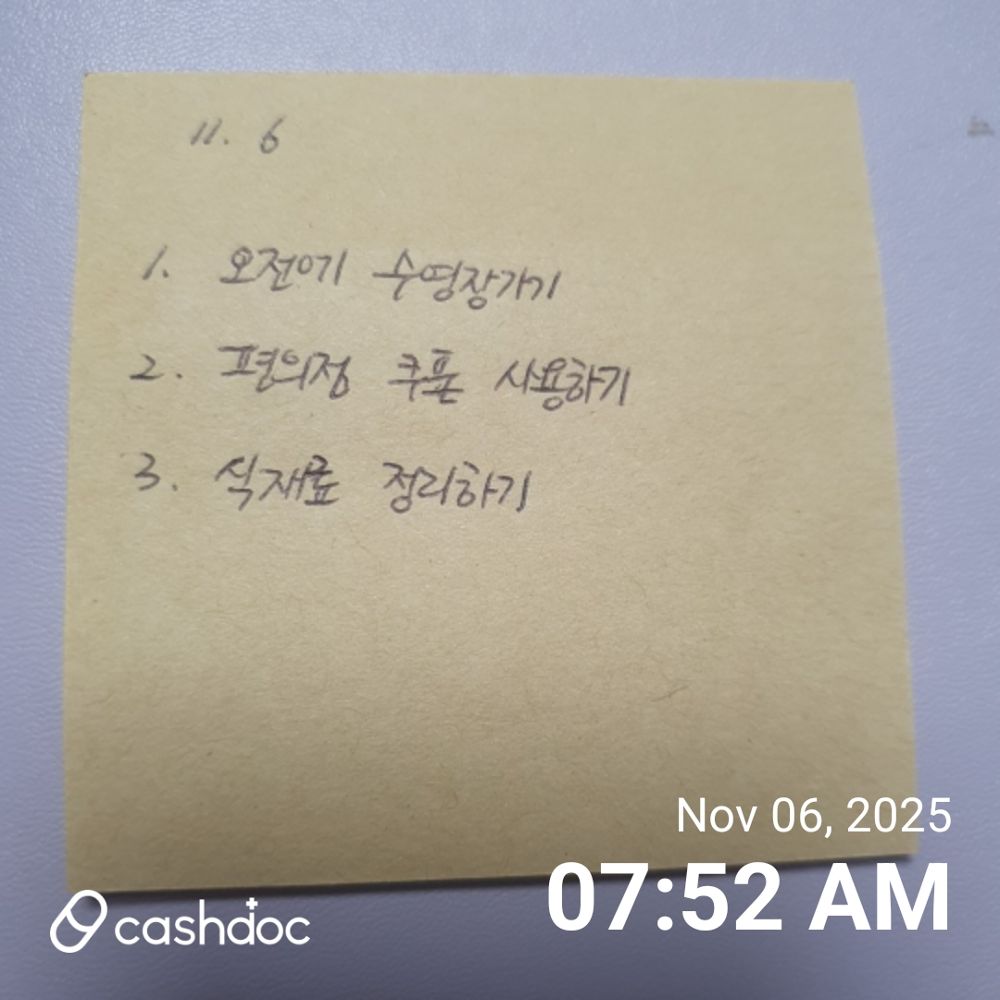 11. 6
1. 오전에 수영장가기
2. 편의점 쿠폰 사용하기
3. 식재료 정리하기
Nov 06, 2025
07:52 AM
cashdoc